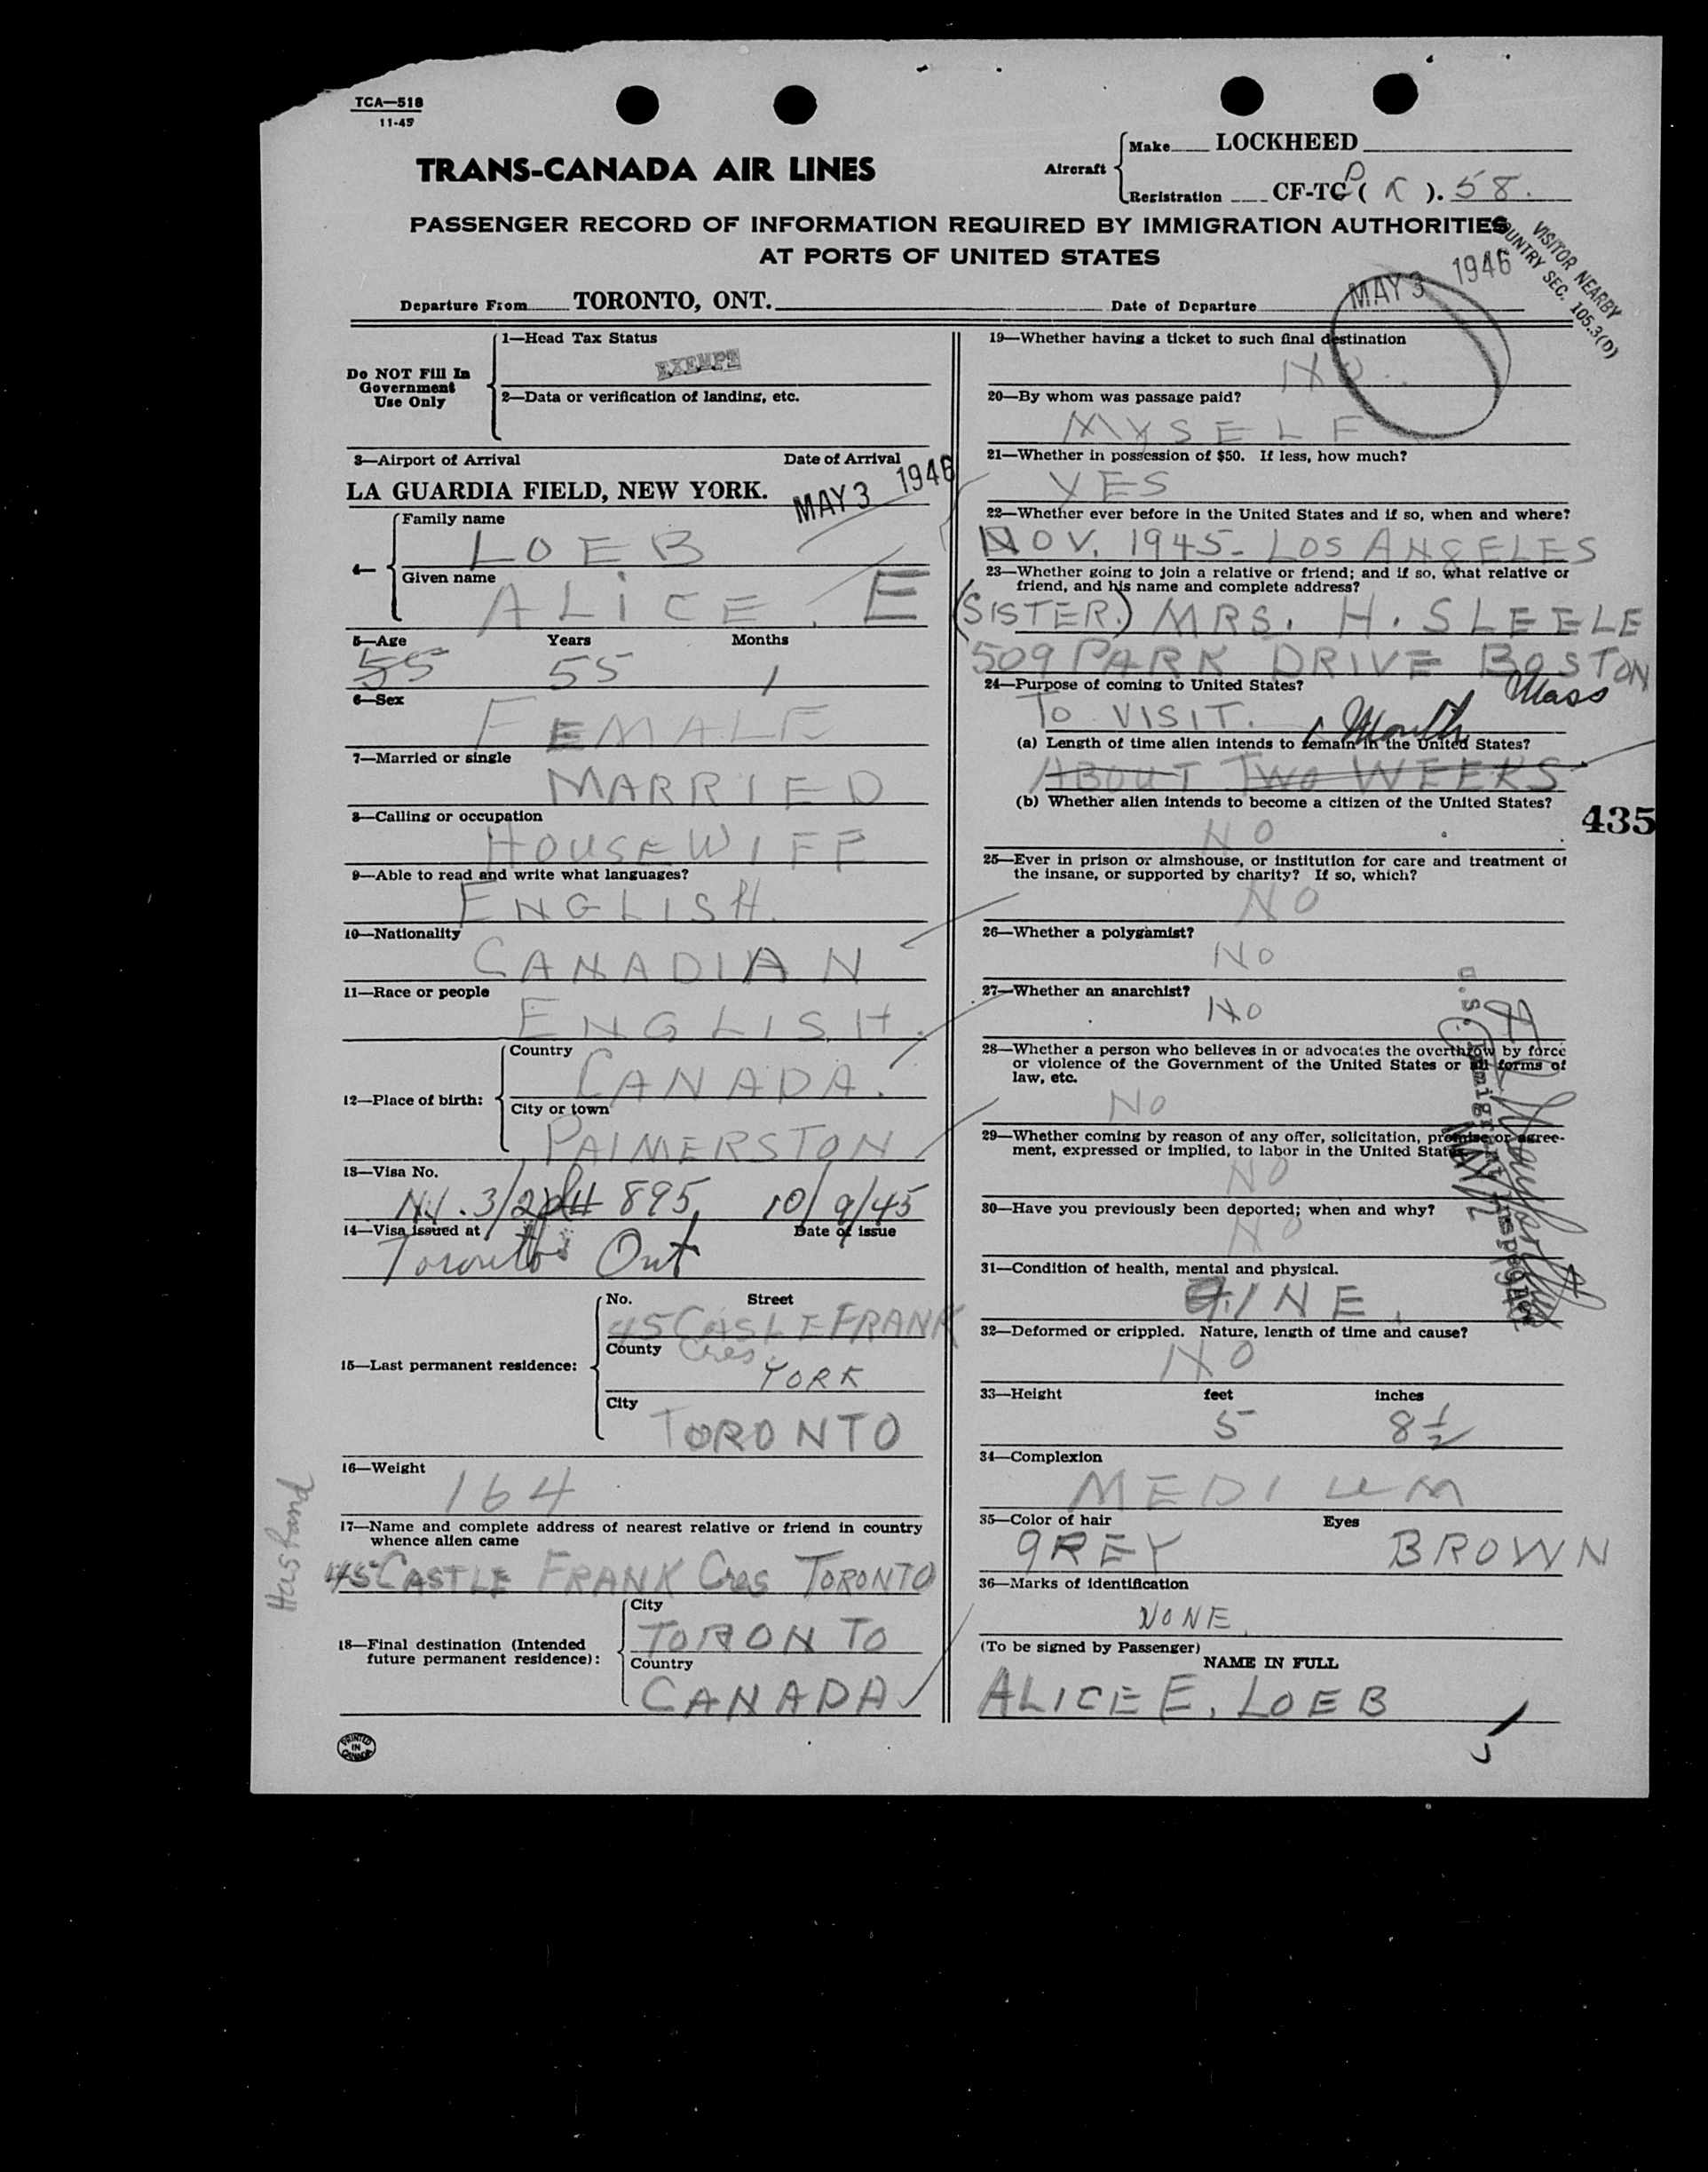 TCA—518
11-45
TRANS-CANADA AIR LINES
Aircraft
Make LOCKHEED
Registration CF-TC ( ). 58.
PASSENGER RECORD OF INFORMATION REQUIRED BY IMMIGRATION AUTHORITIES
AT PORTS OF UNITED STATES
VISITOR NEARBY
COUNTRY SEC. 105.3(D)
Departure From TORONTO, ONT. Date of Departure MAY 3 1946
Do NOT Fill In
Government
Use Only
1—Head Tax Status
EXEMPT
2—Data or verification of landing, etc.
3—Airport of Arrival Date of Arrival
LA GUARDIA FIELD, NEW YORK. MAY 3 1946
4—
Family name
LOEB
Given name
ALICE. E
5—Age Years Months
55 55 1
6—Sex
FEMALE
7—Married or single
MARRIED
8—Calling or occupation
HOUSEWIFE
9—Able to read and write what languages?
ENGLISH.
10—Nationality
CANADIAN
11—Race or people
ENGLISH.
12—Place of birth:
Country
CANADA.
City or town
PALMERSTON
13—Visa No.
895 10/9/45
14—Visa issued at Date of issue
Toronto Ont
15—Last permanent residence:
No. Street
45 CASLE FRANK
Cres.
County
YORK
City
TORONTO
16—Weight
164
17—Name and complete address of nearest relative or friend in country
whence alien came
Husband
45 CASTLE FRANK Cres TORONTO
18—Final destination (Intended
future permanent residence):
City
TORONTO
Country
CANADA
PRINTED
IN
CANADA
19—Whether having a ticket to such final destination
NO.
20—By whom was passage paid?
MYSELF
21—Whether in possession of $50. If less, how much?
YES
22—Whether ever before in the United States and if so, when and where?
NOV. 1945- LOS ANGELES
23—Whether going to join a relative or friend; and if so, what relative or
friend, and his name and complete address?
(SISTER.) MRS. H. SLEELE
509 PARK DRIVE BOSTON
Mass
24—Purpose of coming to United States?
TO VISIT.
1 Month
(a) Length of time alien intends to remain in the United States?
ABOUT TWO WEEKS
(b) Whether alien intends to become a citizen of the United States?
NO
435
25—Ever in prison or almshouse, or institution for care and treatment of
the insane, or supported by charity? If so, which?
NO
26—Whether a polygamist?
NO
27—Whether an anarchist?
NO
28—Whether a person who believes in or advocates the overthrow by force
or violence of the Government of the United States or all forms of
law, etc.
NO
29—Whether coming by reason of any offer, solicitation, promise or agree-
ment, expressed or implied, to labor in the United States
NO
30—Have you previously been deported; when and why?
NO
U.S. Immigrant Inspector
31—Condition of health, mental and physical.
FINE.
32—Deformed or crippled. Nature, length of time and cause?
NO
33—Height feet inches
5 8½
34—Complexion
MEDIUM
35—Color of hair Eyes
GREY BROWN
36—Marks of identification
NONE.
(To be signed by Passenger)
NAME IN FULL
ALICE E. LOEB